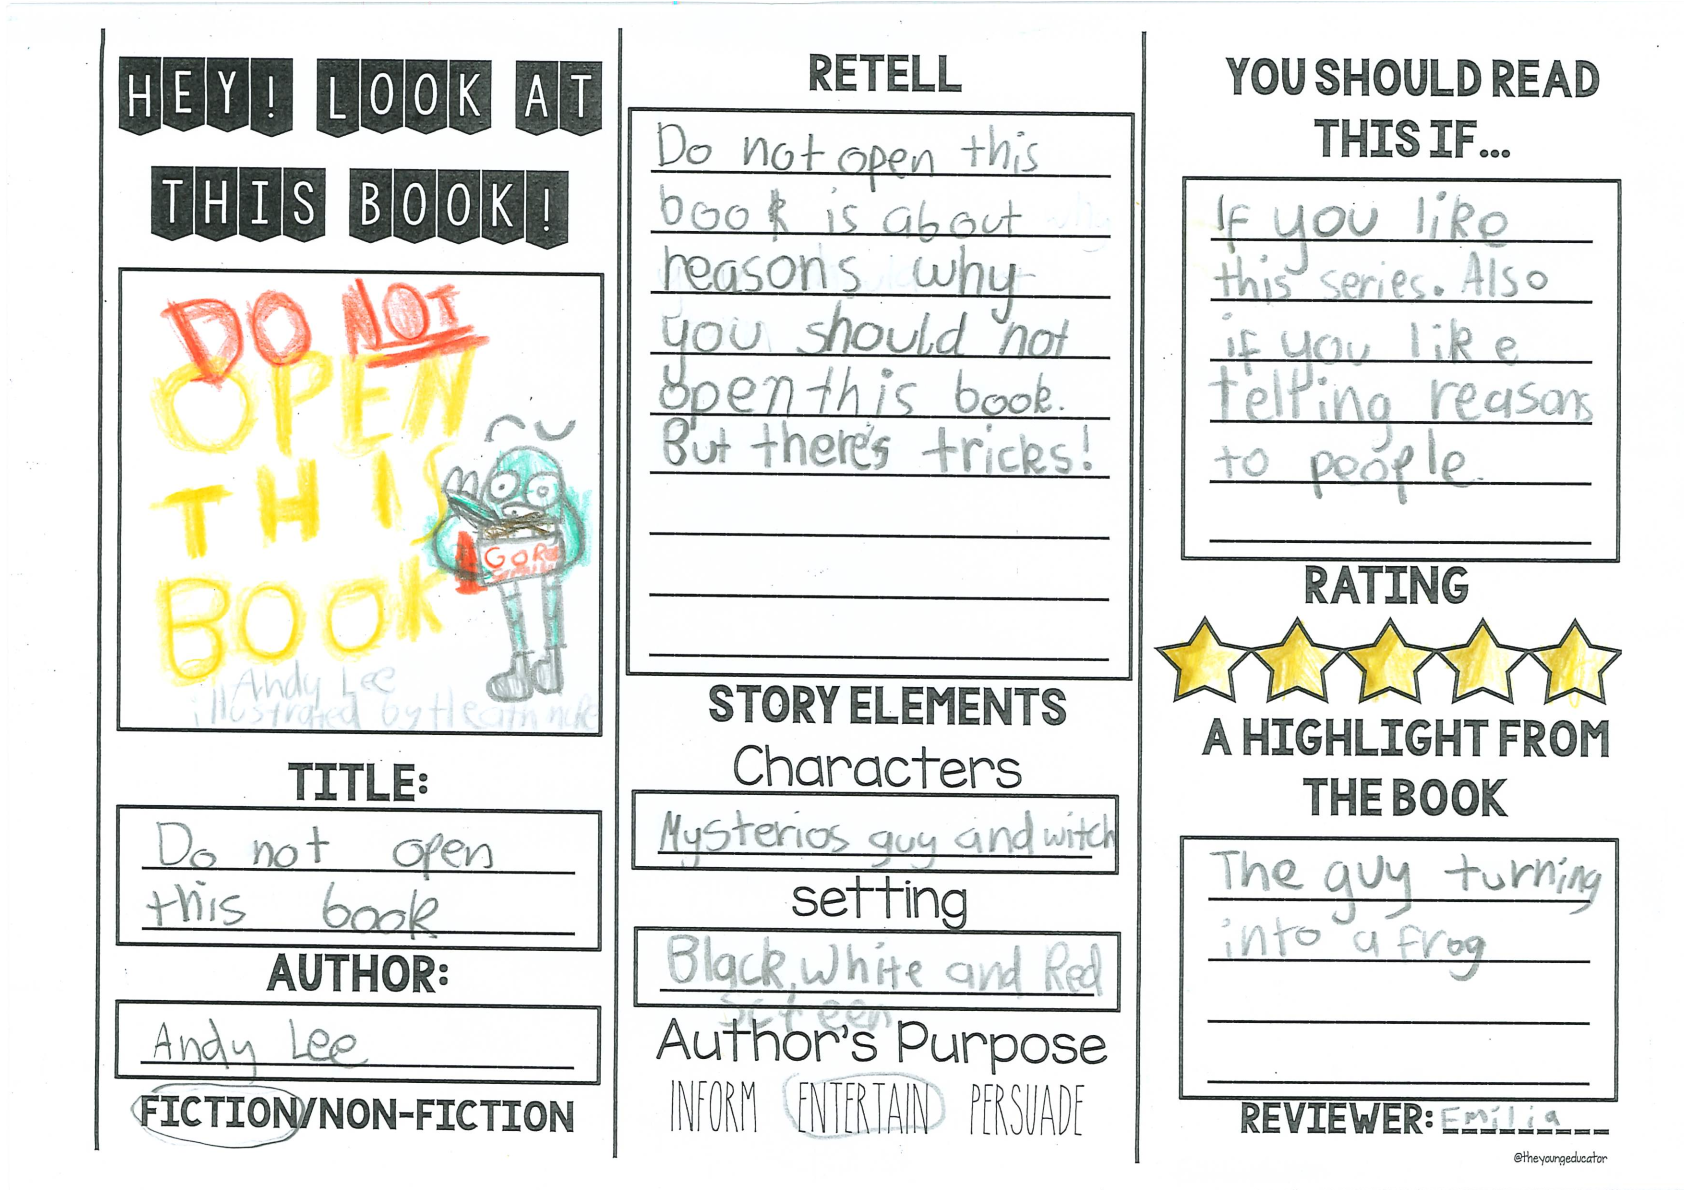 HEY! LOOK AT
THIS BOOK!
DO NOT
OPEN
THIS
BOOK
Andy Lee
illustrated by Heath
TITLE:
Do not open
this book
AUTHOR:
Andy Lee
FICTION/NON-FICTION
RETELL
Do not open this
book is about
reasons why
you should not
open this book.
But there's tricks!
STORY ELEMENTS
Characters
Mysterios guy and witch
setting
Black, White and Red
screen
Author's Purpose
INFORM ENTERTAIN PERSUADE
YOU SHOULD READ
THIS IF...
If you like
this series. Also
if you like
telling reasons
to people.
RATING
A HIGHLIGHT FROM
THE BOOK
The guy turning
into a frog
REVIEWER: Emilia
@theyoungeducator